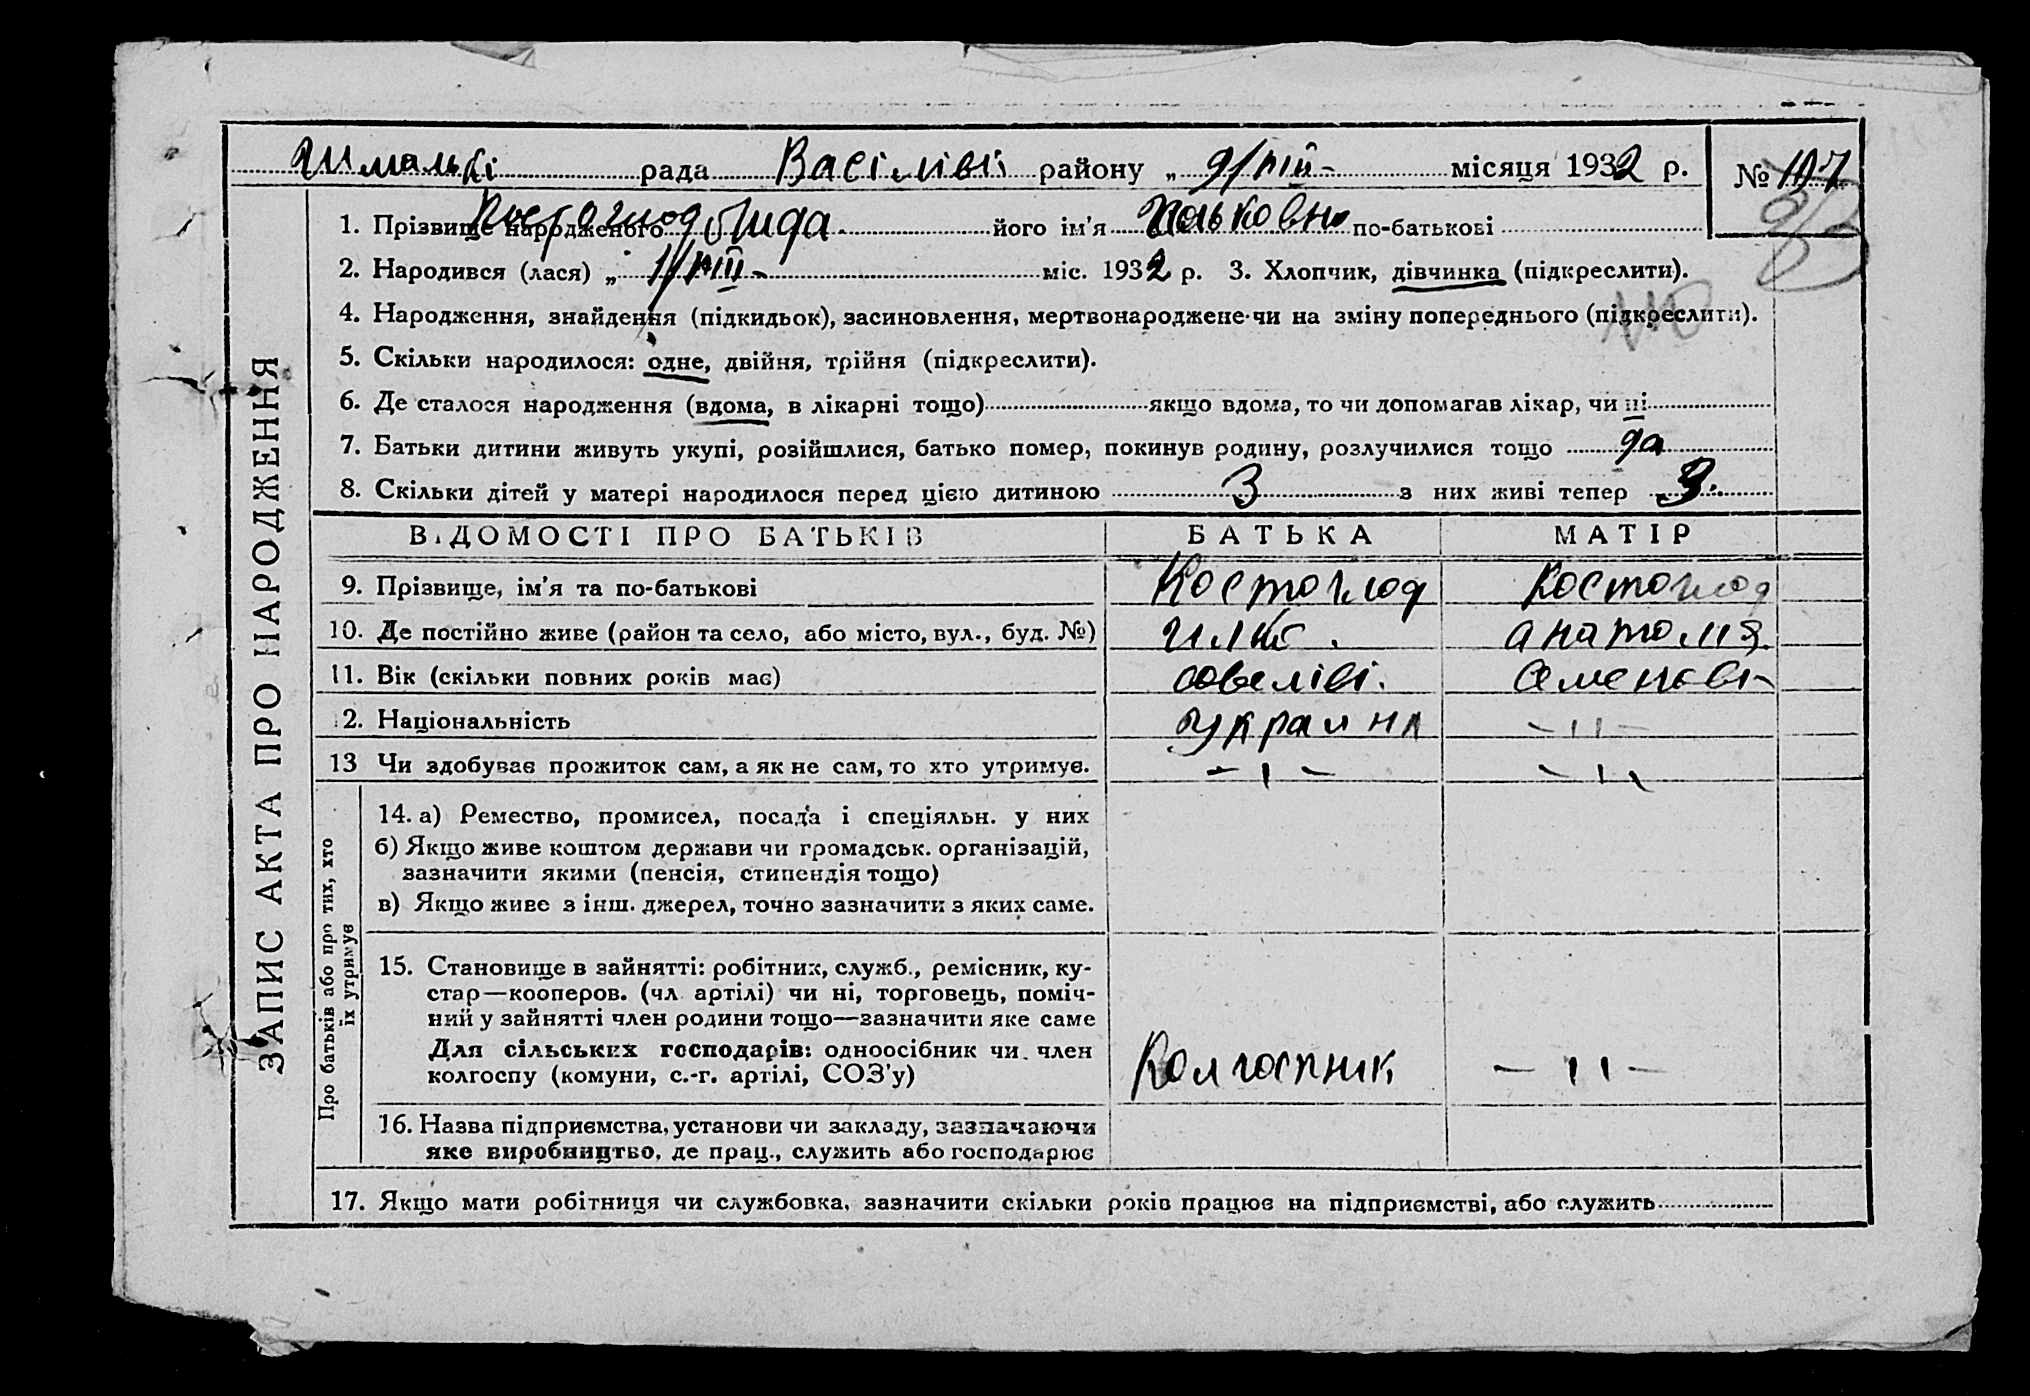 рада Васіліві району „ 9/VIII - місяця 1932 р. № 107
1. Прізвище народженого Костоглод Лида його ім'я Ильковна по-батькові
2. Народився (лася) „ 1/VIII - міс. 1932 р. 3. Хлопчик, дівчинка (підкреслити).
4. Народження, знайдення (підкидьок), засиновлення, мертвонароджене чи на зміну попереднього (підкреслити).
5. Скільки народилося: одне, двійня, трійня (підкреслити).
6. Де сталося народження (вдома, в лікарні тощо) якщо вдома, то чи допомагав лікар, чи ні
7. Батьки дитини живуть укупі, розійшлися, батько помер, покинув родину, розлучилися тощо да
8. Скільки дітей у матері народилося перед цією дитиною 3 з них живі тепер 3.
ВІДОМОСТІ ПРО БАТЬКІВ БАТЬКА МАТІР
9. Прізвище, ім'я та по-батькові Костоглод Костоглод
10. Де постійно живе (район та село, або місто, вул., буд. №) анатолія
11. Вік (скільки повних років має) Савеліві. Семенові
12. Національність украина - 11 -
13 Чи здобуває прожиток сам, а як не сам, то хто утримує. - 1 - - 1 -
14. а) Ремество, промисел, посада і спеціяльн. у них
б) Якщо живе коштом держави чи громадськ. організацій,
зазначити якими (пенсія, стипендія тощо)
в) Якщо живе з інш. джерел, точно зазначити з яких саме.
15. Становище в зайнятті: робітник, служб., ремісник, ку-
стар—кооперов. (чл. артілі) чи ні, торговець, поміч-
ний у зайнятті член родини тощо—зазначити яке саме
Для сільських господарів: одноосібник чи член
колгоспу (комуни, с.-г. артілі, СОЗ'у) Колгоспник - 11 -
16. Назва підприємства, установи чи закладу, зазначаючи
яке виробництво, де прац., служить або господарює
17. Якщо мати робітниця чи службовка, зазначити скільки років працює на підприємстві, або служить
ЗАПИС АКТА ПРО НАРОДЖЕННЯ
Про батьків або про тих, хто
їх утримує